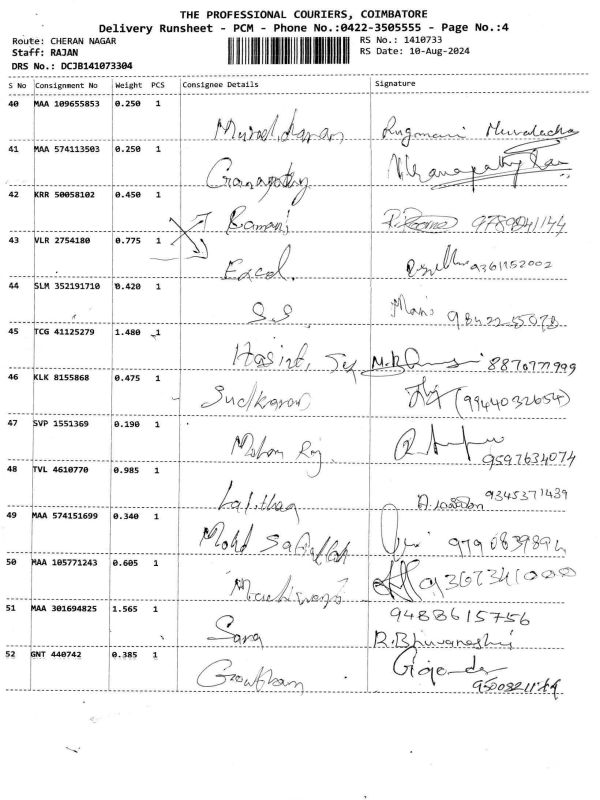 THE PROFESSIONAL COURIERS, COIMBATORE
Delivery Runsheet - PCM - Phone No.:0422-3505555 - Page No.:4
Route: CHERAN NAGAR
RS No.: 1410733
Staff: RAJAN
RS Date: 10-Aug-2024
DRS No.: DCJB141073304
S No Consignment No Weight PCS Consignee Details Signature
40 MAA 109655853 0.250 1
41 MAA 574113503 0.250 1
Ganapathy
42 KRR 50058102 0.450 1
Ramani 9789841144
43 VLR 2754180 0.775 1
Excel. 9361152002
44 SLM 352191710 0.420 1
S.S Mani
45 TCG 41125279 1.480 1
8870777999
46 KLK 8155868 0.475 1
Sudkaran (9944032654)
47 SVP 1551369 0.190 1
Mohan Raj 9597634074
48 TVL 4610770 0.985 1
Lalithaa 9345371439
49 MAA 574151699 0.340 1
Mohd
50 MAA 105771243 0.605 1
9367341000
51 MAA 301694825 1.565 1
9488615756
Sara R.Bhuvaneshwari
52 GNT 440742 0.385 1
Gowtham